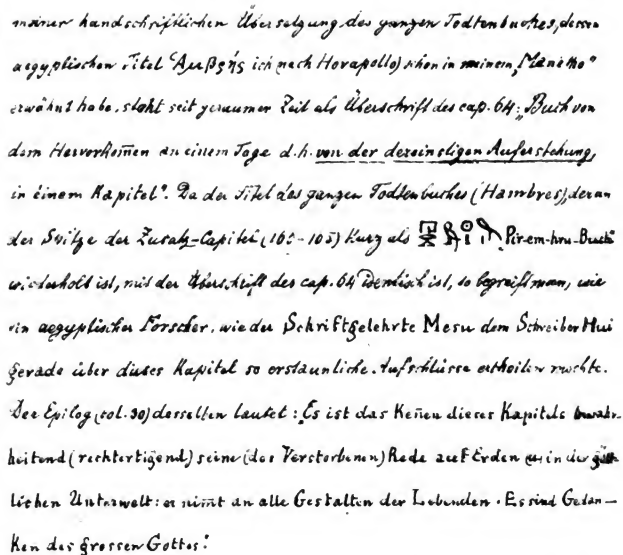 meiner handschriftlichen Übersetzung des ganzen Todtenbuches, dessen
aegyptischen Titel Ἀμβρής ich (nach Horapollo) schon in meinem „Manetho“
erwähnt habe, steht seit geraumer Zeit als Überschrift des cap. 64: „Buch von
dem Hervorkom̄en an einem Tage d.h. von der dereinstigen Auferstehung,
in einem Kapitel“. Da der Titel des ganzen Todtenbuches (Hambres), der an
der Spitze der Zusatz-Capitel kurz als Pir-em-hru-Buch
wiederholt ist, mit der Überschrift des cap. 64 identisch ist, so begreift man, wie
ein aegyptischer Forscher, wie der Schriftgelehrte Mesu dem Schreiber Hui
gerade über dieses Kapitel so erstaunliche Aufschlüsse ertheilen mochte.
Der Epilog (col. 30) desselben lautet: „Es ist das Ken̄en dieses Kapitels bewahr-
heitend (rechtfertigend) seine (des Verstorbenen) Rede auf Erden in der gött-
lichen Unterwelt: er nim̄t an alle Gestalten der Lebenden. Es sind Gedan-
ken des grossen Gottes.“